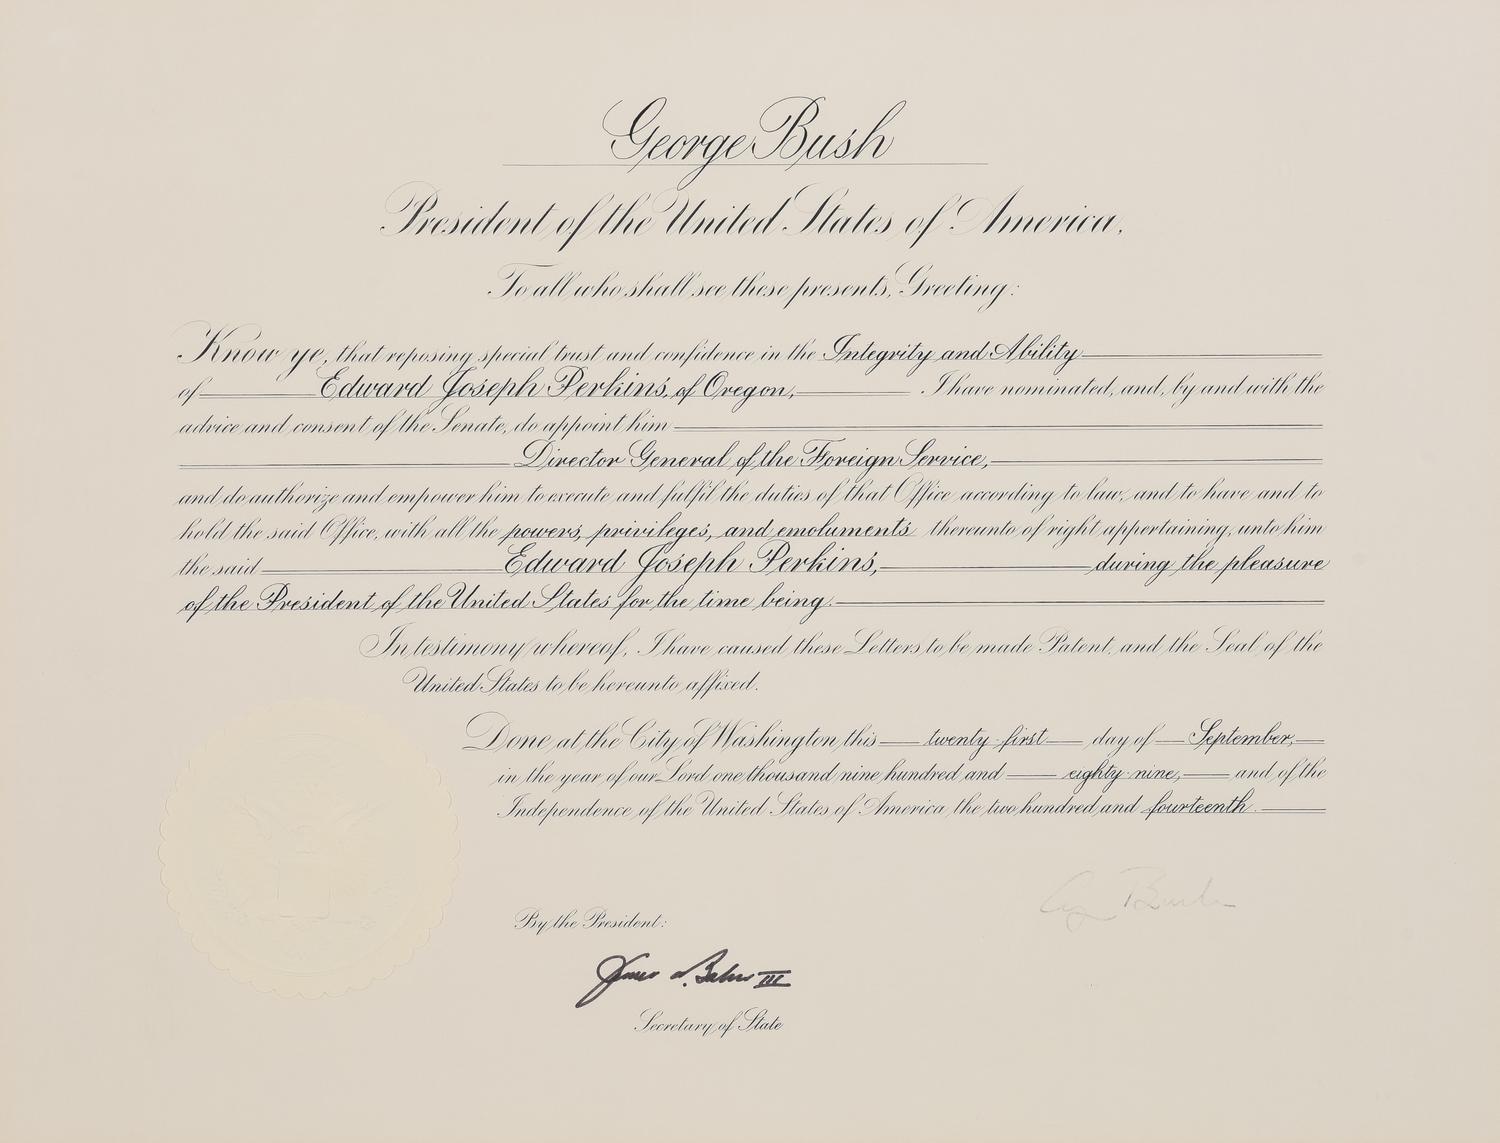 George Bush
President of the United States of America,
To all who shall see these presents, Greeting:
Know ye, that reposing special trust and confidence in the Integrity and Ability
of Edward Joseph Perkins, of Oregon, I have nominated, and, by and with the
advice and consent of the Senate, do appoint him
Director General of the Foreign Service,
and do authorize and empower him to execute and fulfil the duties of that Office according to law, and to have and to
hold the said Office, with all the powers, privileges, and emoluments thereunto of right appertaining, unto him
the said Edward Joseph Perkins, during the pleasure
of the President of the United States for the time being.
In testimony whereof, I have caused these Letters to be made Patent, and the Seal of the
United States to be hereunto affixed.
Done at the City of Washington this twenty-first day of September,
in the year of our Lord one thousand nine hundred and eighty-nine, and of the
Independence of the United States of America the two hundred and fourteenth.
Bush
By the President:
James A. Baker III
Secretary of State